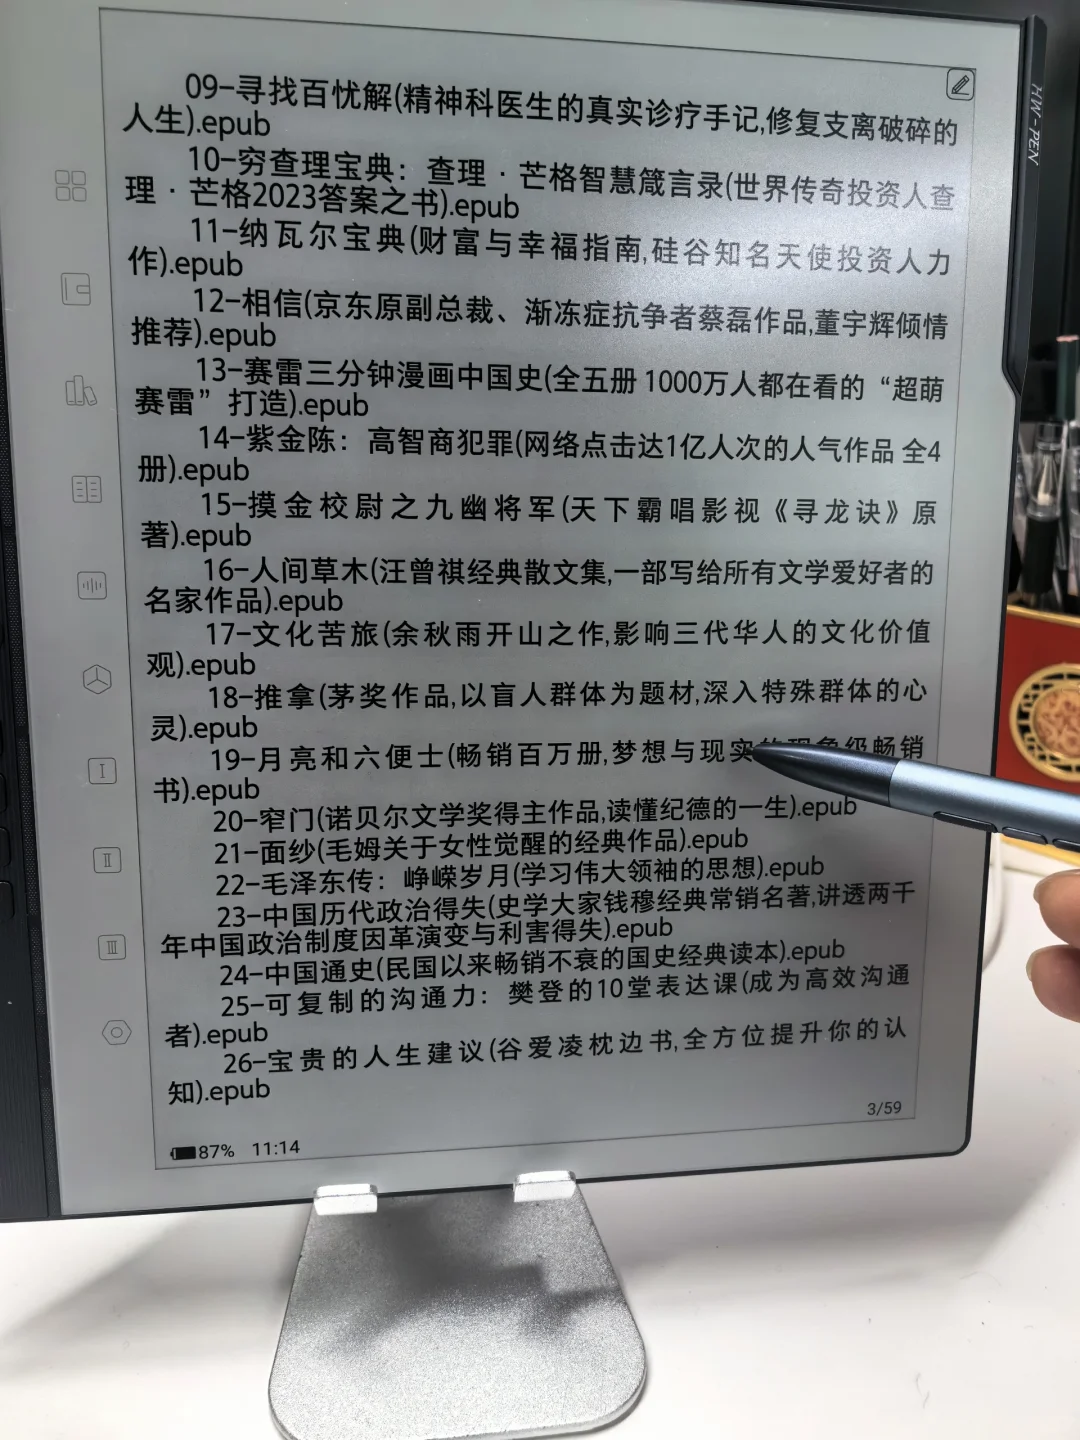 09-寻找百忧解(精神科医生的真实诊疗手记,修复支离破碎的
人生).epub
10-穷查理宝典：查理·芒格智慧箴言录(世界传奇投资人查
理·芒格2023答案之书).epub
11-纳瓦尔宝典(财富与幸福指南,硅谷知名天使投资人力
作).epub
12-相信(京东原副总裁、渐冻症抗争者蔡磊作品,董宇辉倾情
推荐).epub
13-赛雷三分钟漫画中国史(全五册 1000万人都在看的“超萌
赛雷”打造).epub
14-紫金陈：高智商犯罪(网络点击达1亿人次的人气作品 全4
册).epub
15-摸金校尉之九幽将军(天下霸唱影视《寻龙诀》原
著).epub
16-人间草木(汪曾祺经典散文集,一部写给所有文学爱好者的
名家作品).epub
17-文化苦旅(余秋雨开山之作,影响三代华人的文化价值
观).epub
18-推拿(茅奖作品,以盲人群体为题材,深入特殊群体的心
灵).epub
19-月亮和六便士(畅销百万册,梦想与现实的现象级畅销
书).epub
20-窄门(诺贝尔文学奖得主作品,读懂纪德的一生).epub
21-面纱(毛姆关于女性觉醒的经典作品).epub
22-毛泽东传：峥嵘岁月(学习伟大领袖的思想).epub
23-中国历代政治得失(史学大家钱穆经典常销名著,讲透两千
年中国政治制度因革演变与利害得失).epub
24-中国通史(民国以来畅销不衰的国史经典读本).epub
25-可复制的沟通力：樊登的10堂表达课(成为高效沟通
者).epub
26-宝贵的人生建议(谷爱凌枕边书,全方位提升你的认
知).epub
3/59
87% 11:14
HW-PEN
I
II
III